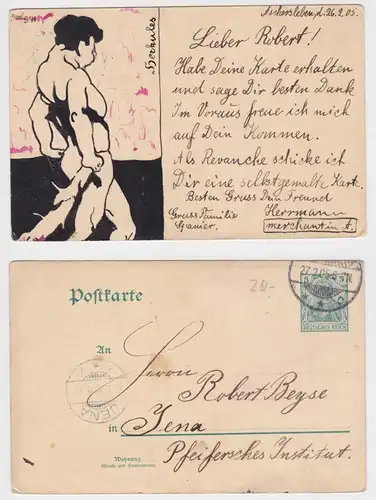 SH
Herkules
Aschersleben, d. 26.2.05.
Lieber Robert!
Habe Deine Karte erhalten
und sage Dir besten Dank.
Im Voraus freue ich mich
auf Dein Kommen.
Als Revanche schicke ich
Dir eine selbstgemalte Kart.
Besten Gruss Dein Freund
Gruss Familie Herrmann
Spanier. merchant in A.
Postkarte
20.-
27.2.05
DEUTSCHES REICH
An
Herrn
Robert Beyse
in Jena
JENA
Pfeifersches Institut.
Wohnung
(Straße und Hausnummer)